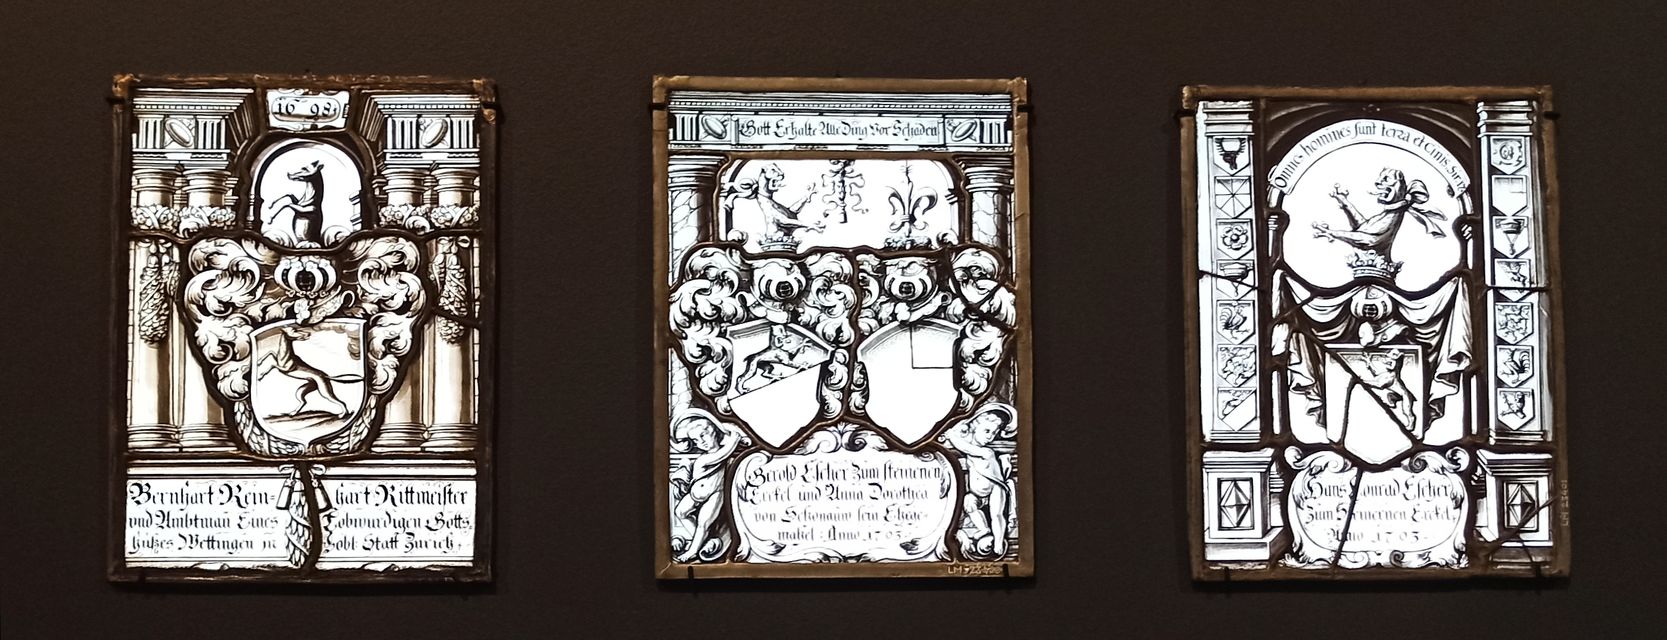 1698
Bernhart Rein-hart Rittmeister
vnd Ambtman Eines Lobwürdigen Gotts-
hußes Wettingen in Lobl: Statt Zürich,
Gott Erhalte Alle Ding Vor Schaden
Gerold Escher Zum steinenen
Erckel und Anna Dorothea
von Schönauw sein Ehege-
mahel: Anno 1703.
LM
Omnes homines sunt terra et cinis
Hans Conrad Escher
Zum Steinernen Erckel,
Anno 1703.
LM 23401